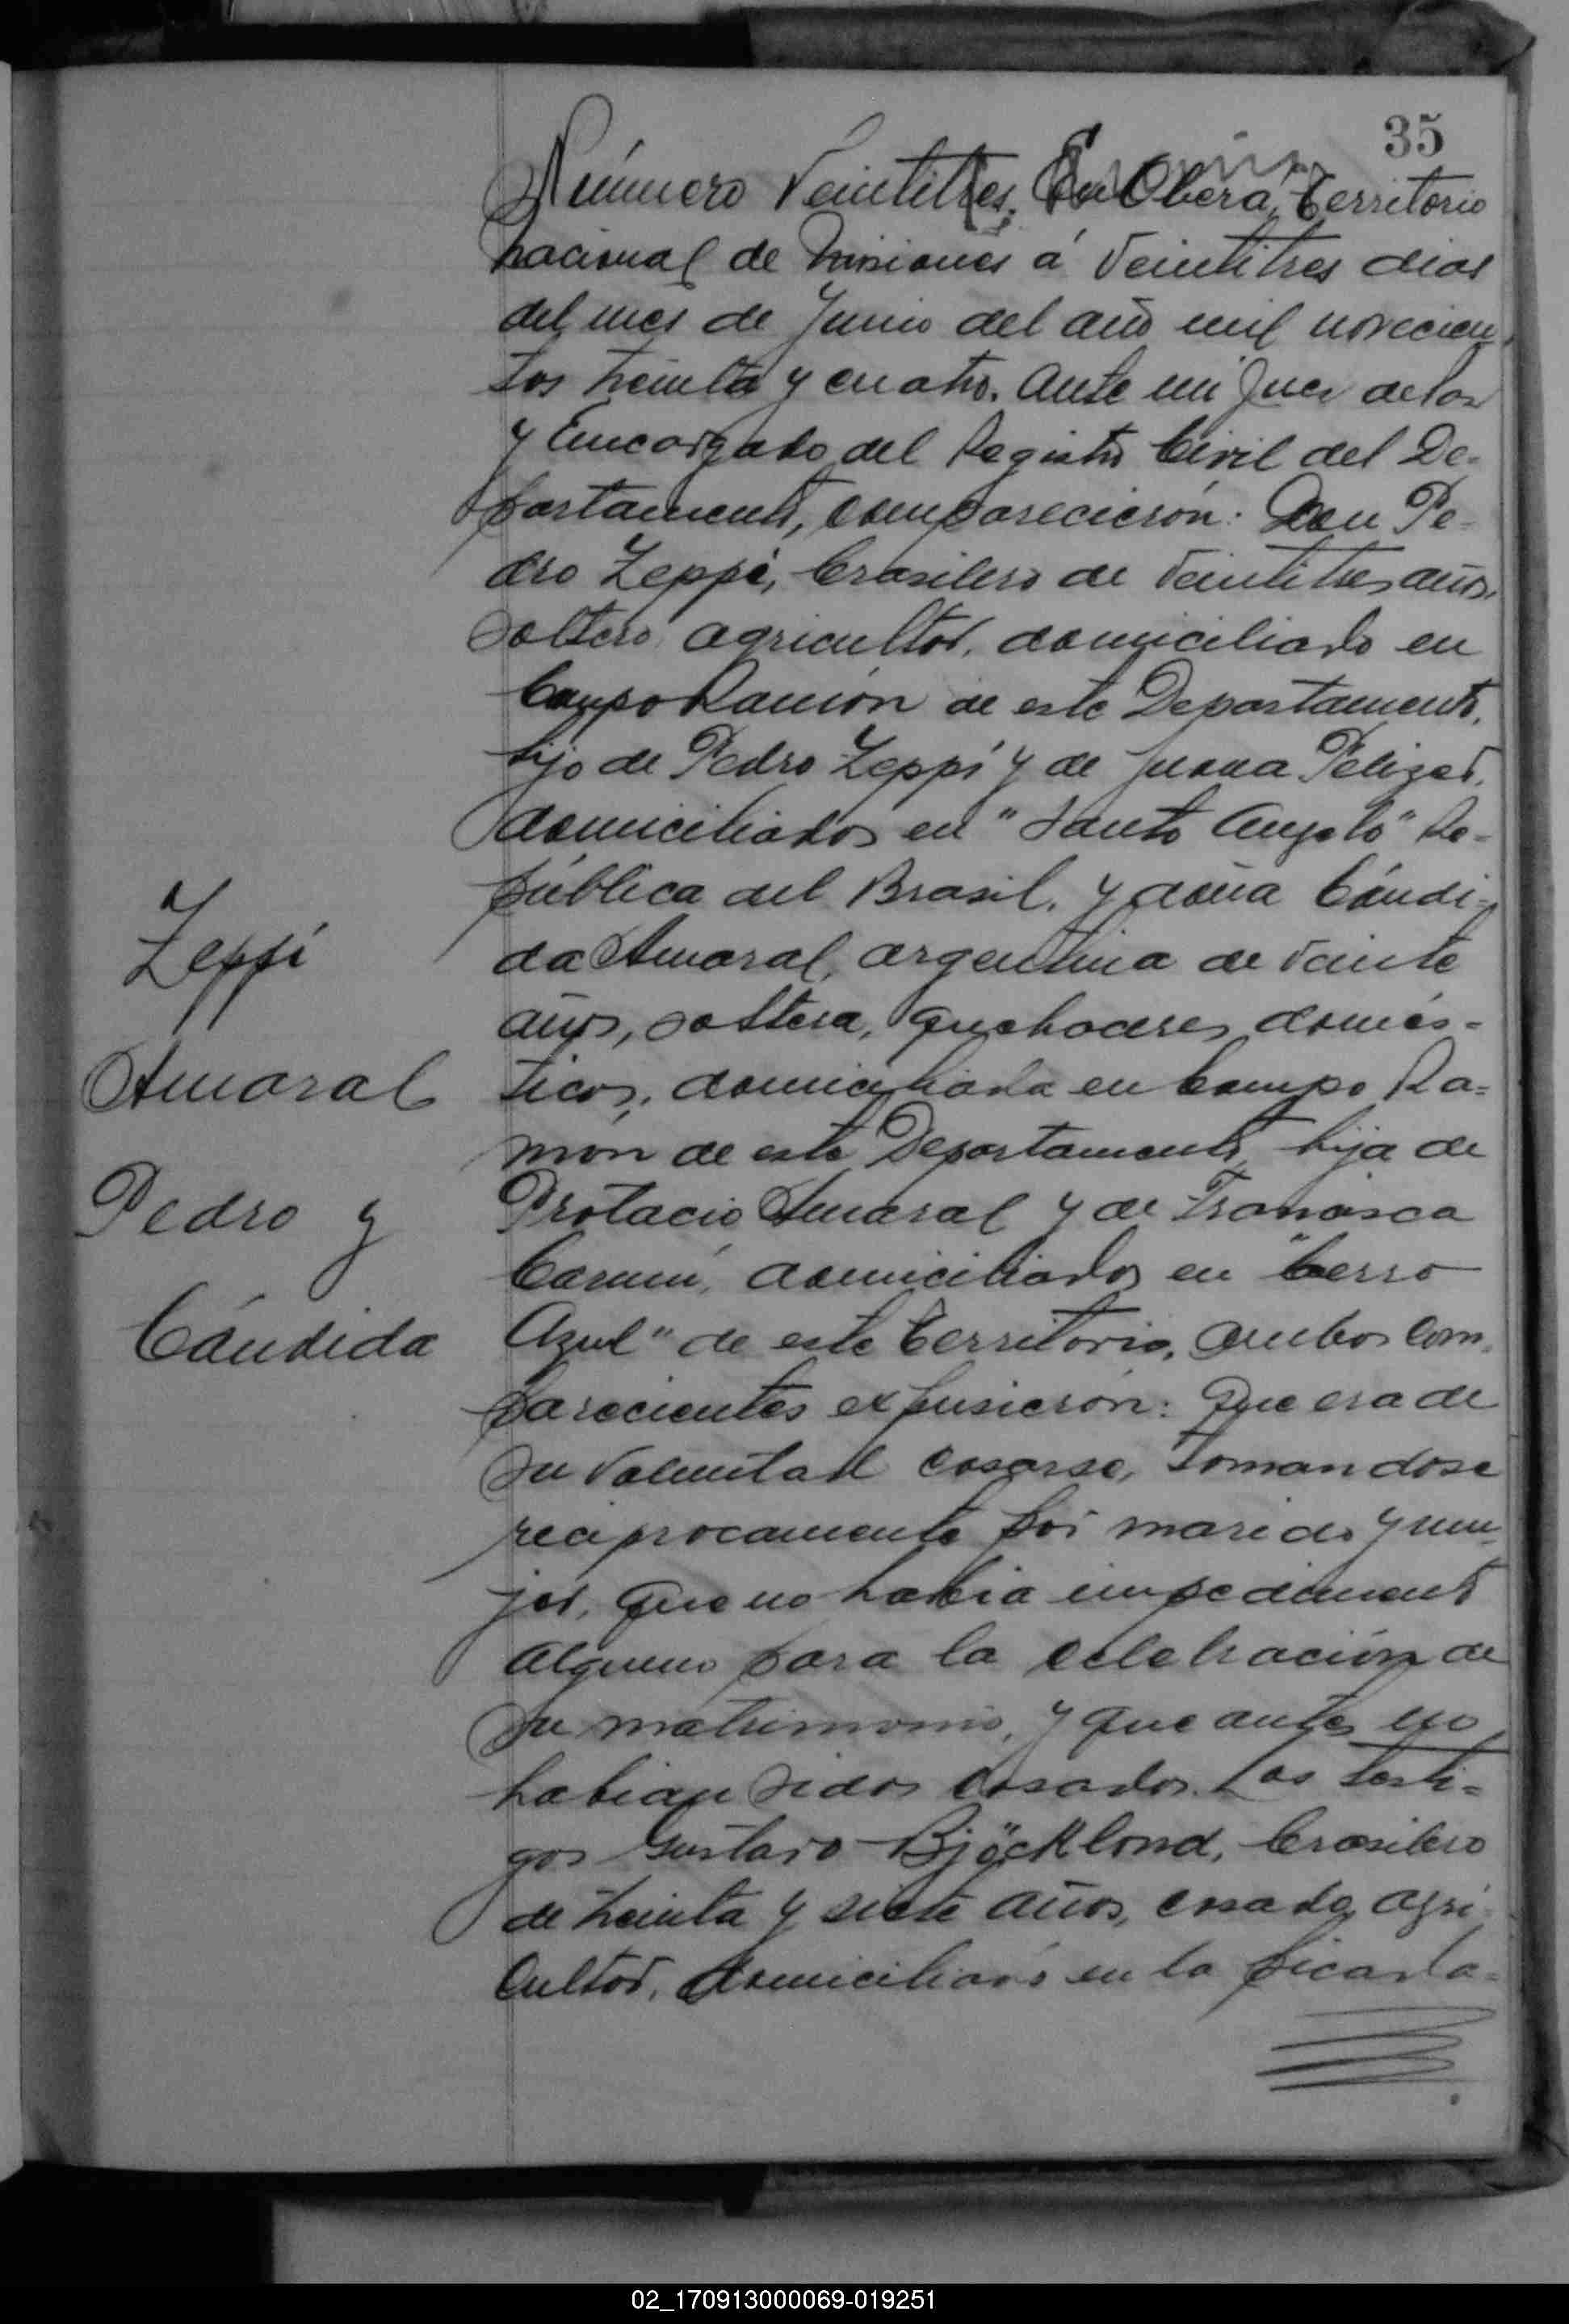 35
Número Veintitres. En Oberá, Territorio
nacional de Misiones á Veintitres dias
del mes de Junio del año mil novecien
tos treinta y cuatro. Ante mi Juez de Paz
y Encargado del Registro Civil del De-
partamento, comparecierón: Don Pe-
dro Zeppi, brasilero de veintitres años,
soltero agricultor, domiciliado en
Campo Ramón de este Departamento,
hijo de Pedro Zeppi y de Juana Pelizer,
domiciliados en "Santo Angelo" Re-
pública del Brasil, y doña Cándi-
da Amaral, argentina de veinte
años, soltera, quehaceres domés-
ticos, domiciliada en Campo Ra-
món de este Departamento, hija de
Protacio Amaral y de Francisca
domiciliados en "Cerro
Azul" de este Territorio, ambos com
parecientes expusierón: Que era de
su voluntad casarse, tomandose
reciprocamente por marido y mu
jer, que no habia impedimento
alguno para la celebración de
su matrimonio, y que antes no
habian sidos casados. Los testi-
gos Gustavo Bjöcklond, brasilero
de treinta y siete años, casado, agri
cultor, domiciliado en la picada-
Zeppi
Amaral
Pedro y
Cándida
02_170913000069-019251